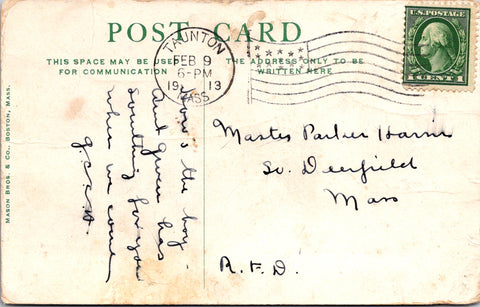 POST CARD
THIS SPACE MAY BE USED
FOR COMMUNICATION
THE ADDRESS ONLY TO BE
WRITTEN HERE
TAUNTON
FEB 9
6-PM
1913
MASS
U.S. POSTAGE
1 CENT 1
How's the boy
Aunt has
something for you
when we come
Master Parker
So. Deerfield
Mass
R.F.D.
MASON BROS. & CO., BOSTON, MASS.